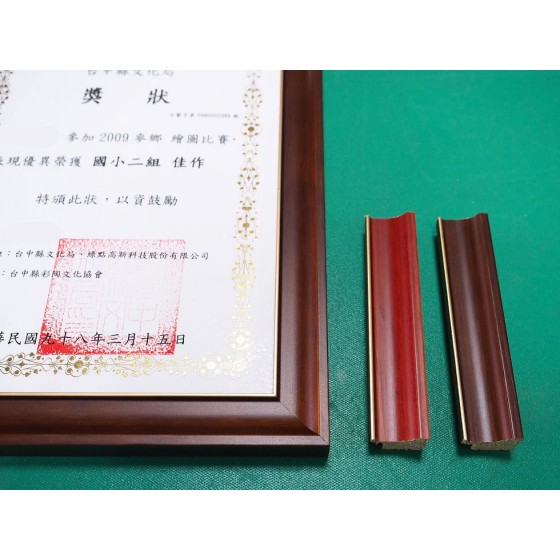 台中縣文化局
獎狀
參加2009麥鄉 繪圖比賽,
表現優異榮獲 國小二組 佳作
特頒此狀,以資鼓勵
:台中縣文化局、綠點高新科技股份有限公司
:台中縣彩陶文化協會
華民國九十八年三月十五日